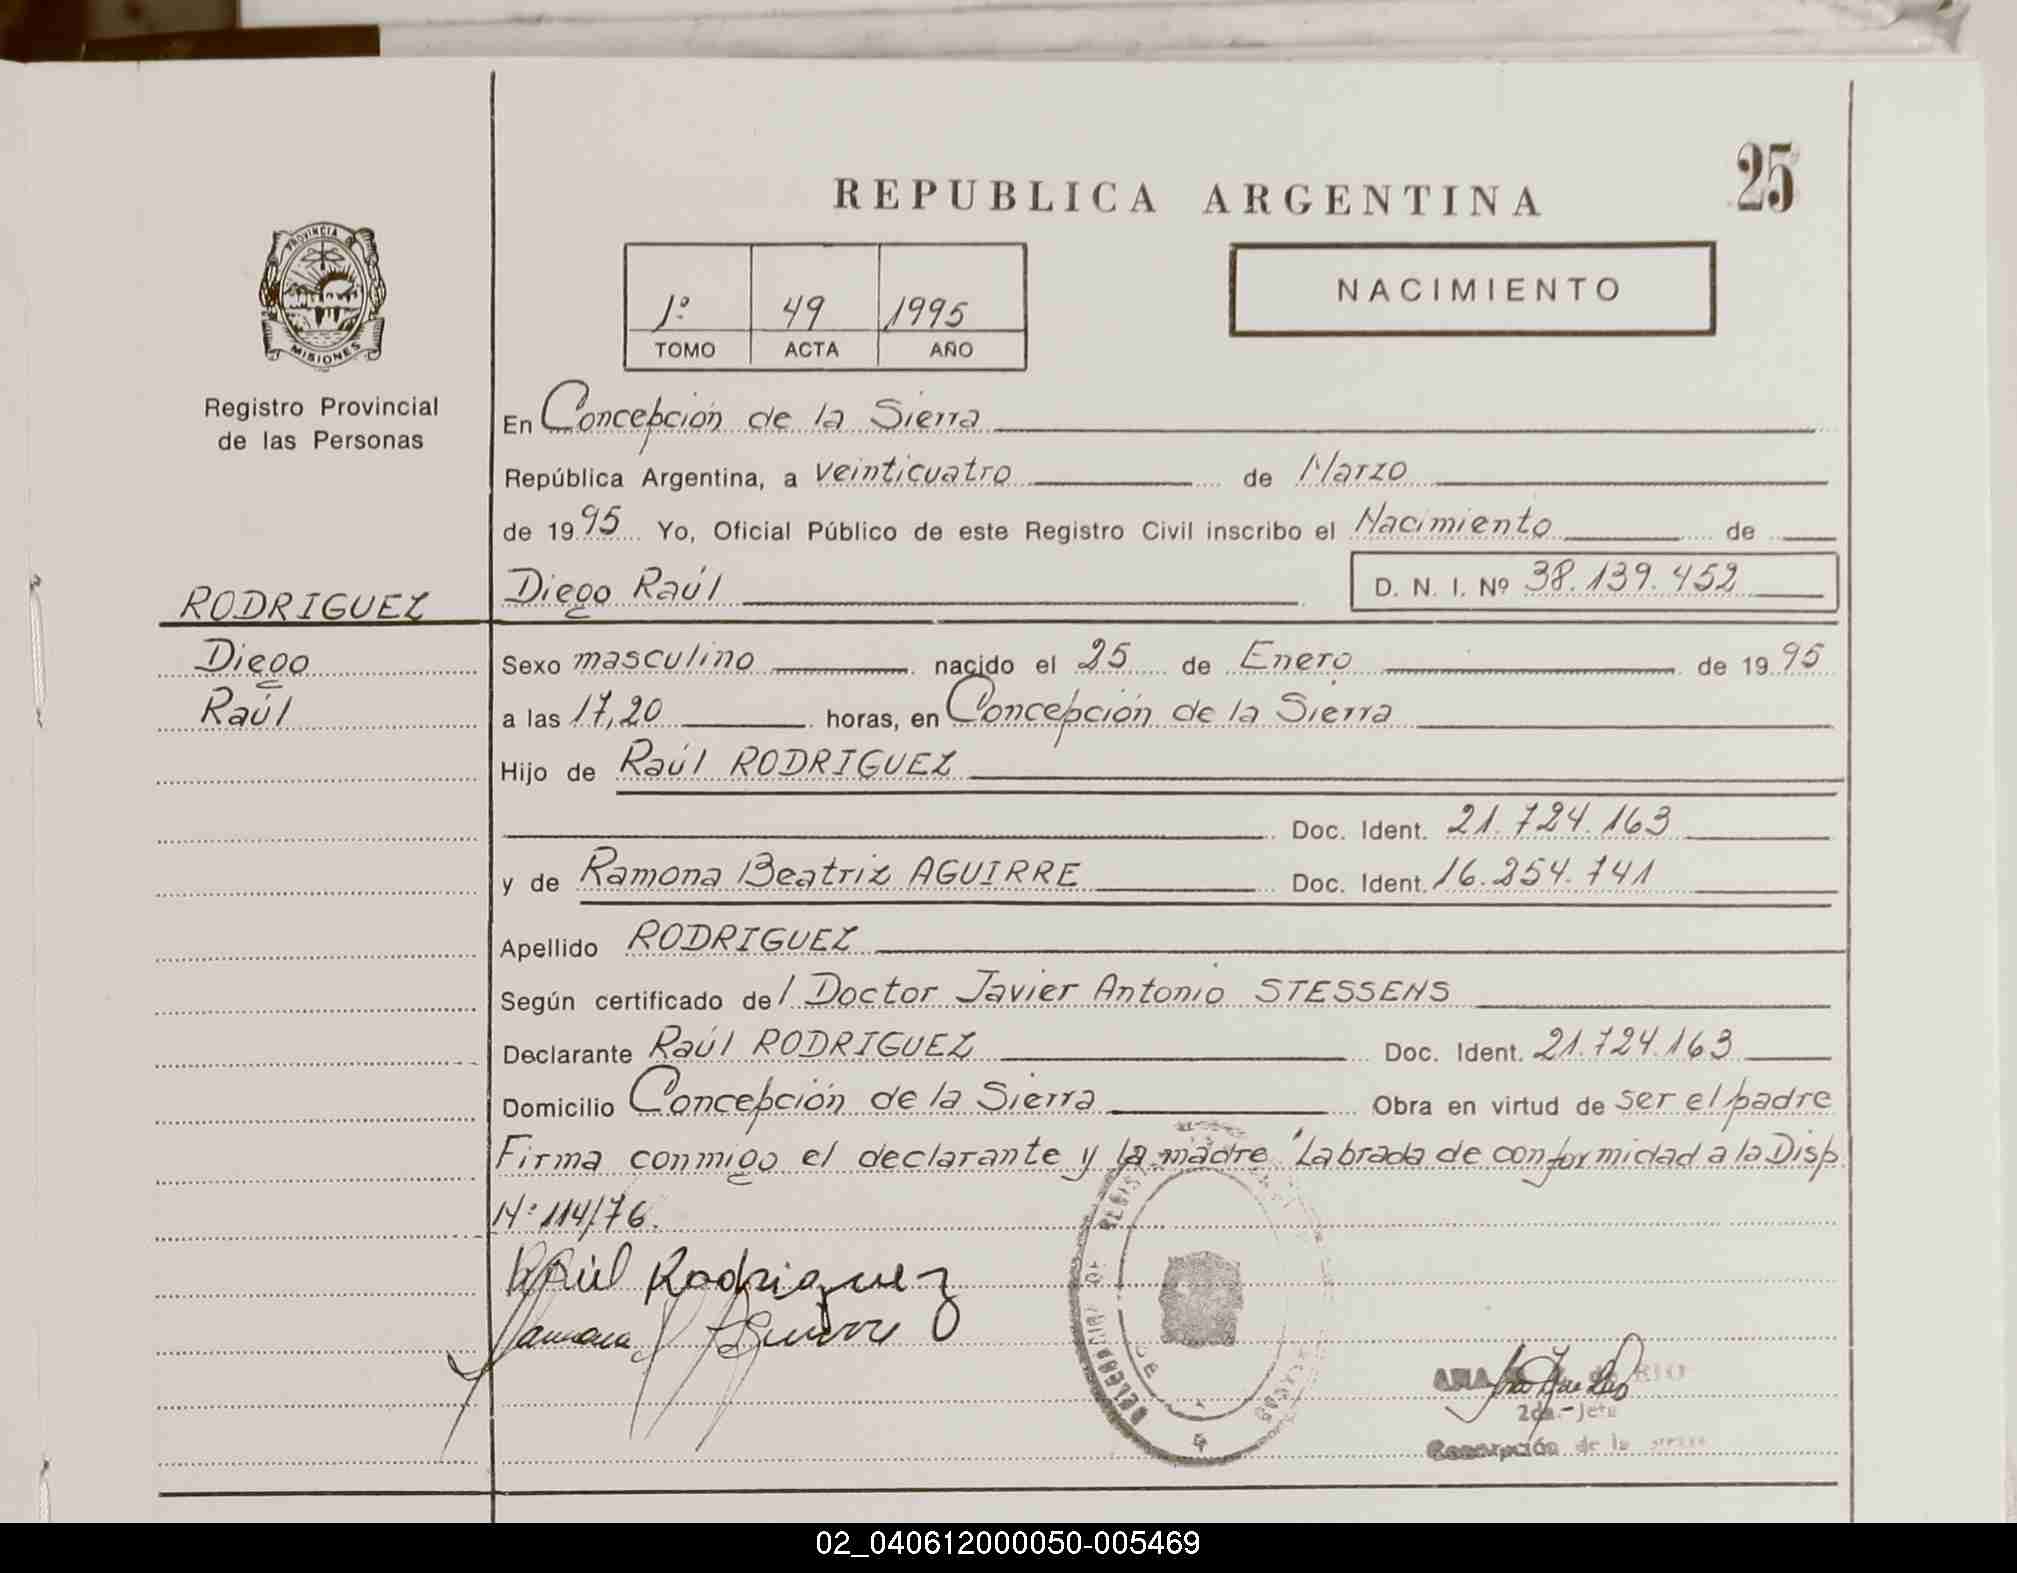 25
REPUBLICA ARGENTINA
PROVINCIA DE
MISIONES
Registro Provincial
de las Personas
NACIMIENTO
1º 49 1995
TOMO ACTA AÑO
En Concepción de la Sierra
República Argentina, a veinticuatro de Marzo
de 1995 Yo, Oficial Público de este Registro Civil inscribo el Nacimiento de
Diego Raúl D. N. I. Nº 38.139.452
RODRIGUEZ
Diego
Raúl
Sexo masculino nacido el 25 de Enero de 1995
a las 17,20 horas, en Concepción de la Sierra
Hijo de Raúl RODRIGUEZ
Doc. Ident. 21.724.163
y de Ramona Beatriz AGUIRRE Doc. Ident. 16.254.741
Apellido RODRIGUEZ
Según certificado del Doctor Javier Antonio STESSENS
Declarante Raúl RODRIGUEZ Doc. Ident. 21.724.163
Domicilio Concepción de la Sierra Obra en virtud de ser el padre
Firma conmigo el declarante y la madre "Labrada de conformidad a la Disp.
Nº 114/76.
Raúl Rodriguez
Ramona Aguirre
ANA
2da.-Jefe
Concepción de la Sierra
02_040612000050-005469